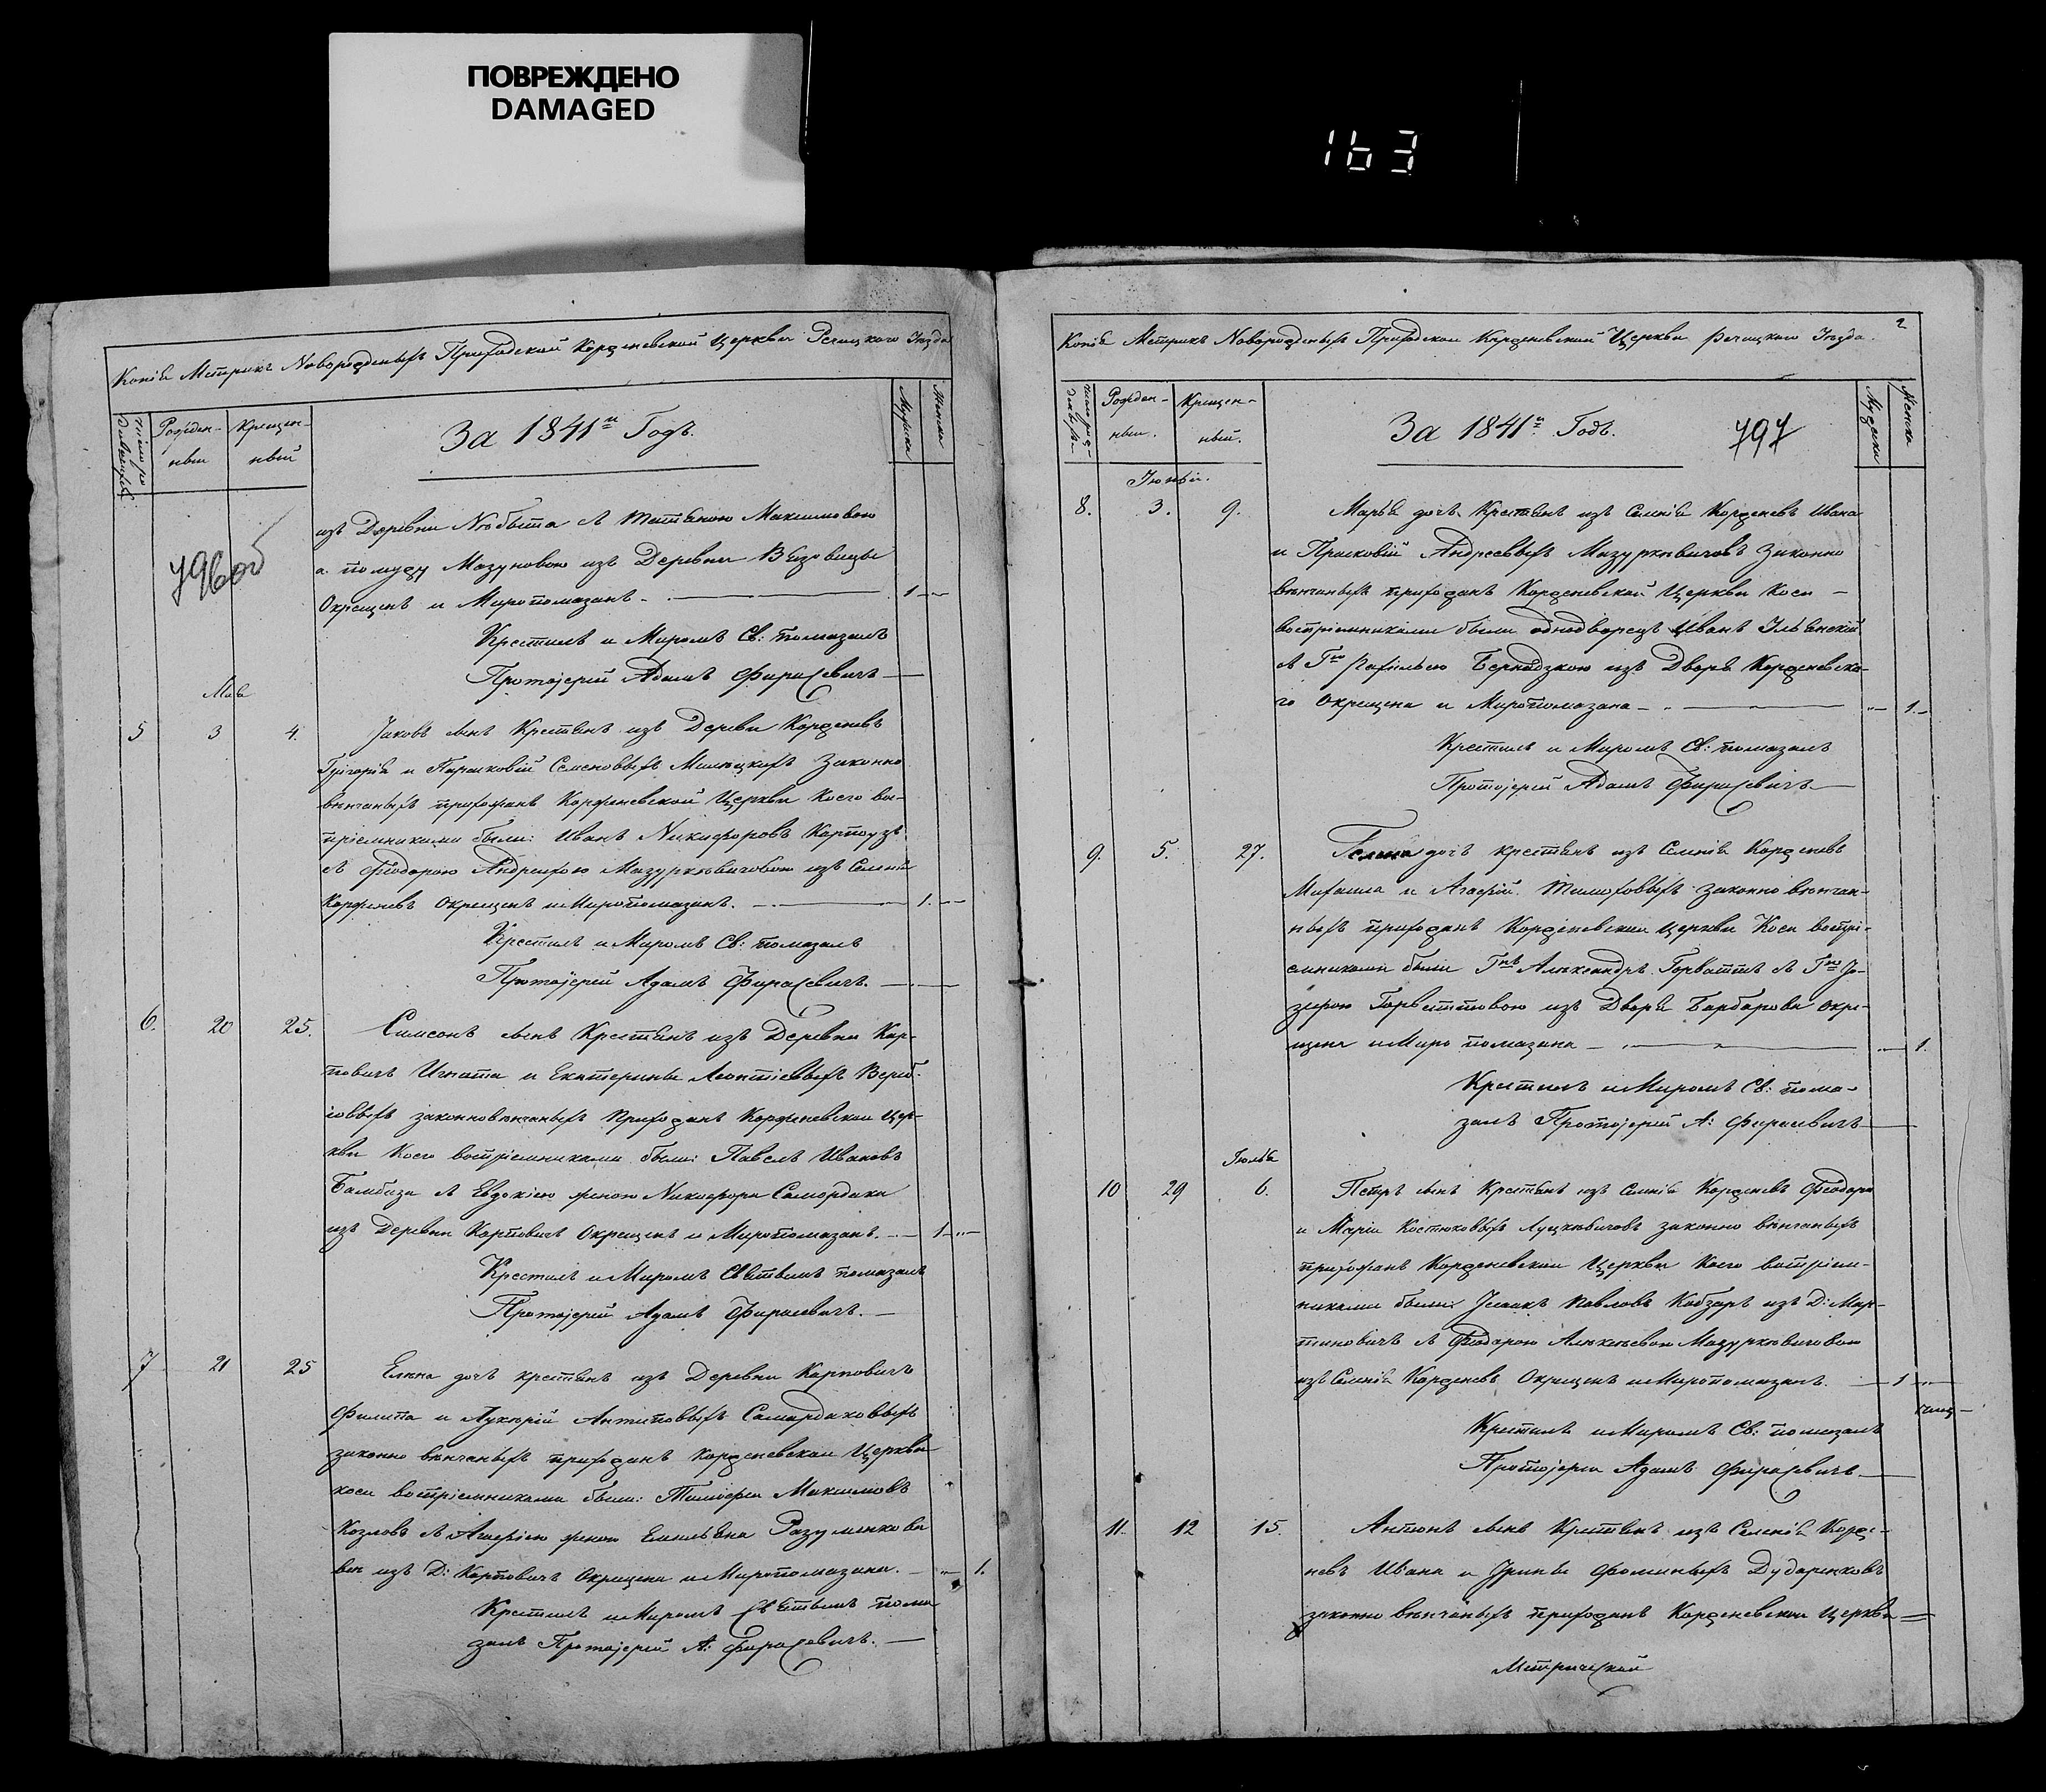 ПОВРЕЖДЕНО
DAMAGED
163
Копія Метрикъ Новорожденыхъ Приходской Корженевской Церкви Речицкого Уезда
Рожден-
ныи
Крещен-
ный
За 1841й Годъ.
Мужска
Женска
796об
изъ Деревни с Татіяною Максимовою
а помужу Мазуновою изъ Деревни
Окрещенъ и Миропомазанъ 1
Крестилъ и Миромъ Св: помазалъ
Протоіерей Адамъ Фирасевичъ
Маія
5 3 4. Іаковъ сынъ Крестьянъ изъ Деревни Корженевъ
Григорія и Парасковій Семеновыхъ Законно
вѣнчаныхъ прихожанъ Корженевской Церкви Коего вос-
пріемниками были: Иванъ Никифоровъ
съ Феодорою Андреихою Мазуркѣвичовою изъ Селенія
Корженевъ Окрещенъ и Миропомазанъ. 1.
Крестилъ и Миромъ Св: помазалъ
Протоіерей Адамъ Фирасевичъ.
6. 20 25. Симеонъ сынъ Крестьянъ изъ Деревни Кар-
повичъ Игната и Екатерины Леонтіевыхъ
законновѣнчаныхъ Прихожанъ Корженевскои Цер-
кви Коего воспріемниками были: Павелъ Ивановъ
съ Евдокіею женою Никифора Самордака
изъ Деревни Карповичъ Окрещенъ и Миропомазанъ. 1
Крестилъ и Миромъ Святымъ помазалъ
Протоіерей Адамъ Фирасевичъ.
7 21 25 Елена дочь крестьянъ изъ Деревни Карповичъ
Филипа и Лукерій Антиповыхъ Самардаковыхъ
законно вѣнчаныхъ прихожанъ Корженевскои Церкви
коеи воспріемниками были: Тимофеи Максимовъ
Козловъ съ Агафіею женою Емельяна Разуменкова
изъ Д: Карповичъ Окрещена и Миропомазана. 1.
Крестилъ и Миромъ Святымъ пома
залъ Протоіерей А: Фирасевичъ.
2
Копія Метрикъ Новорожденыхъ Приходскои Корженевской Церкви Речицкого Уезда.
Рожден-
ныи.
Крещен-
ный.
За 1841й Годъ.
797
Мужска
Женска
Іюньй.
8. 3. 9. Марья дочь Крестьянъ изъ Селенія Корженевъ Ивана
и Прасковій Андреевыхъ Мазуркѣвичовъ Законно
вѣнчаныхъ прихожанъ Корженевской Церкви Коеи
воспріемниками были однодворецъ Иванъ
съ Гю Рахилью изъ Двора Корженевска-
го Окрещена и Миропомазана 1.
Крестилъ и Миромъ Св: помазалъ
Протоіерей Адамъ Фирасевичъ
9. 5. 27. Гелена дочь крестьянъ изъ Селенія Корженевъ
Михаила и Агафій законно вѣнчан-
ныхъ прихожанъ Корженевскаи церкви Коеи воспрі-
емниками были Гнъ Александръ Горваттъ съ Гю Іо-
зефою Горваттовою изъ Двора Барбарова окре-
щена и Миро помазана 1.
Крестилъ и Миромъ Св: пома-
залъ Протоіерей А: Фирасевичъ
Іюлья
10 29 6. Петръ сынъ Крестьянъ изъ Селенія Корженевъ Феодора
и Маріи Костюковыхъ Луцкѣвичовъ законно вѣнчаныхъ
прихожанъ Корженевскаи Церкви Коего воспріем-
никами были: Исаакъ Павловъ Кобзаръ изъ Д: Мар-
тиновичъ съ Феодорою Алексѣевою Мазуркѣвичовою
изъ Селенія Корженевъ Окрещенъ и Миропомазанъ. 1
Крестилъ и Миромъ Св: помазалъ
Протоіереи Адамъ Фирасевичъ
11. 12 15. Антонъ сынъ Крестьянъ изъ Селенія Корже-
невъ Ивана и Ірины Фоминыхъ Дударенковъ
законно вѣнчаныхъ прихожанъ Корженевскаи Церкви
Метрической